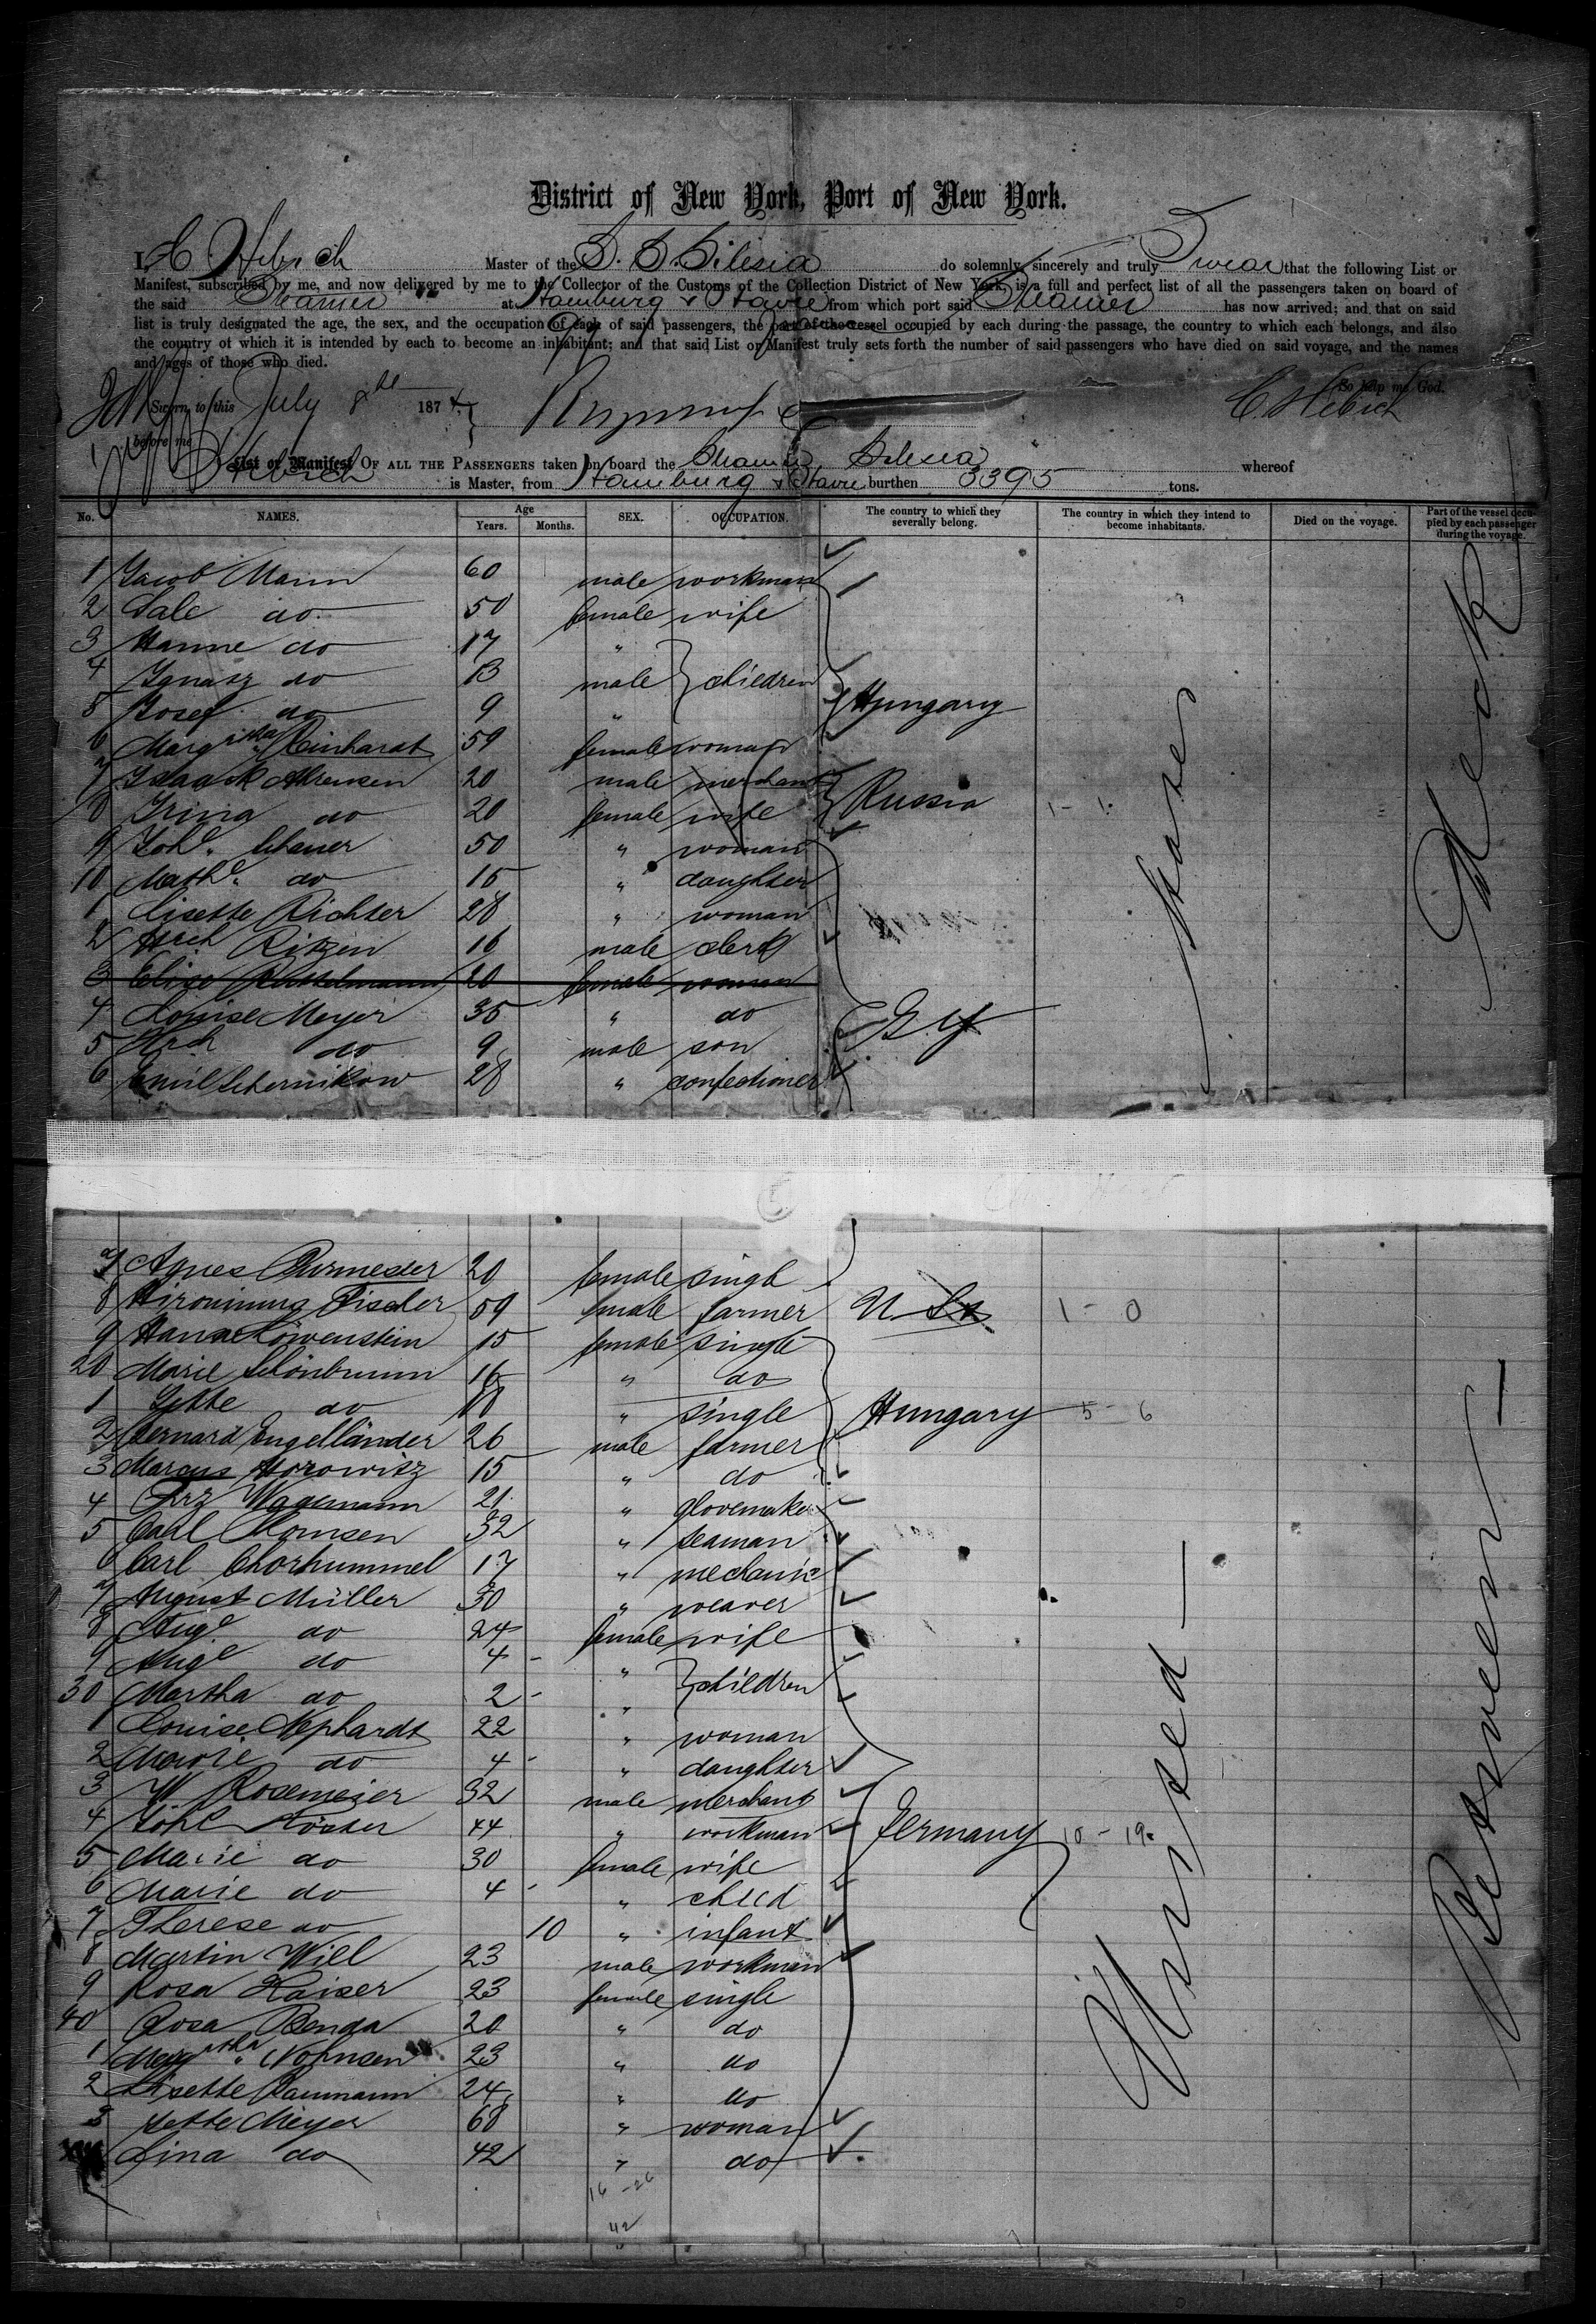 District of New York, Port of New York.
I, C Hebich Master of the S. S. Silesia do solemnly, sincerely and truly Swear that the following List or
Manifest, subscribed by me, and now delivered by me to the Collector of the Customs of the Collection District of New York, is a full and perfect list of all the passengers taken on board of
the said Steamer at Hamburg & Havre from which port said Steamer has now arrived; and that on said
list is truly designated the age, the sex, and the occupation of each of said passengers, the part of the vessel occupied by each during the passage, the country to which each belongs, and also
the country of which it is intended by each to become an inhabitant; and that said List or Manifest truly sets forth the number of said passengers who have died on said voyage, and the names
and ages of those who died.
So help me God.
Sworn to this July 8th 1874 C. Hebich
before me
List or Manifest OF ALL THE PASSENGERS taken on board the Steamer Silesia whereof
Hebich is Master, from Hamburg & Havre burthen 3395 tons.
No. NAMES. Age Years. Months. SEX. OCCUPATION. The country to which they severally belong. The country in which they intend to become inhabitants. Died on the voyage. Part of the vessel occupied by each passenger during the voyage.
1 Jacob Mann 60 male workman
2 Sale do 50 female wife
3 Hanne do 17 "
4 Ignasz do 13 male children
5 Josef do 9 " Hungary
6 Margretha Reinhardt 59 female woman
7 Isaack Abramsen 20 male merchant
8 Irina do 20 female wife Russia 1 - 1
9 Johe. Schauer 50 " woman
10 Mathe. do 15 " daughter
1 Lisette Richter 28 " woman
2 Hrch Ritzen 16 male clerk
3 Elise 20 female woman
4 Louise Meyer 35 " do
5 Hrch do 9 male son Gy
6 Emil Schernikow 28 " confectioner
States
Deck
7 Agnes Burmester 20 female single
8 Hironimus Fischer 59 male farmer U Sts 1 - 0
9 Hana Löwenstein 15 female single
20 Marie Schönbrunn 16 " do
1 Jette do 18 " single Hungary 5 - 6
2 Bernard Engelländer 26 male farmer
3 Marcus Horowitz 15 " do
4 Frz Wagemann 21 " glovemaker
5 Carl Thomsen 32 " seaman
6 Carl Chorhummel 17 " mechanic
7 August Müller 30 " weaver
8 Auge do 24 female wife
9 Auge do 4 "
30 Martha do 2 " children
1 Louise Nephardt 22 " woman
2 Marie do 4 " daughter
3 W Rosemeier 32 male merchant
4 Johe Köster 44 " workman Germany 10 - 19
5 Marie do 30 female wife
6 Marie do 4 " child
7 Therese do 10 " infant
8 Martin Will 23 male workman
9 Rosa Kaiser 23 female single
40 Rosa Benda 20 " do
1 Margretha Nohnsen 23 " do
2 Lisette Baumann 24 " do
3 Jette Meyer 68 " woman
Lina do 42 " do
16 - 26
42
United
Between